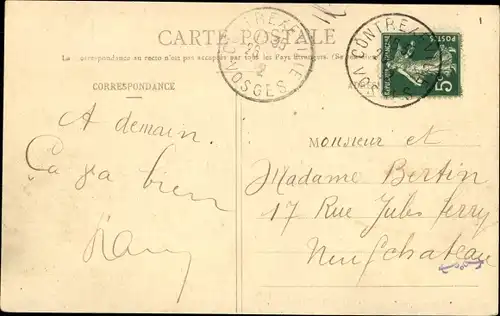 CARTE POSTALE
La correspondance au recto n'est pas acceptée par tous les Pays Étrangers. (Se
CONTREXEVILLE
VOSGES
CONTREX
VOSGES
POSTES
5
CORRESPONDANCE
A demain.
Ça va bien
Monsieur et
Madame Bertin
17 Rue Jules Ferry
Neufchateau
Vosges
1